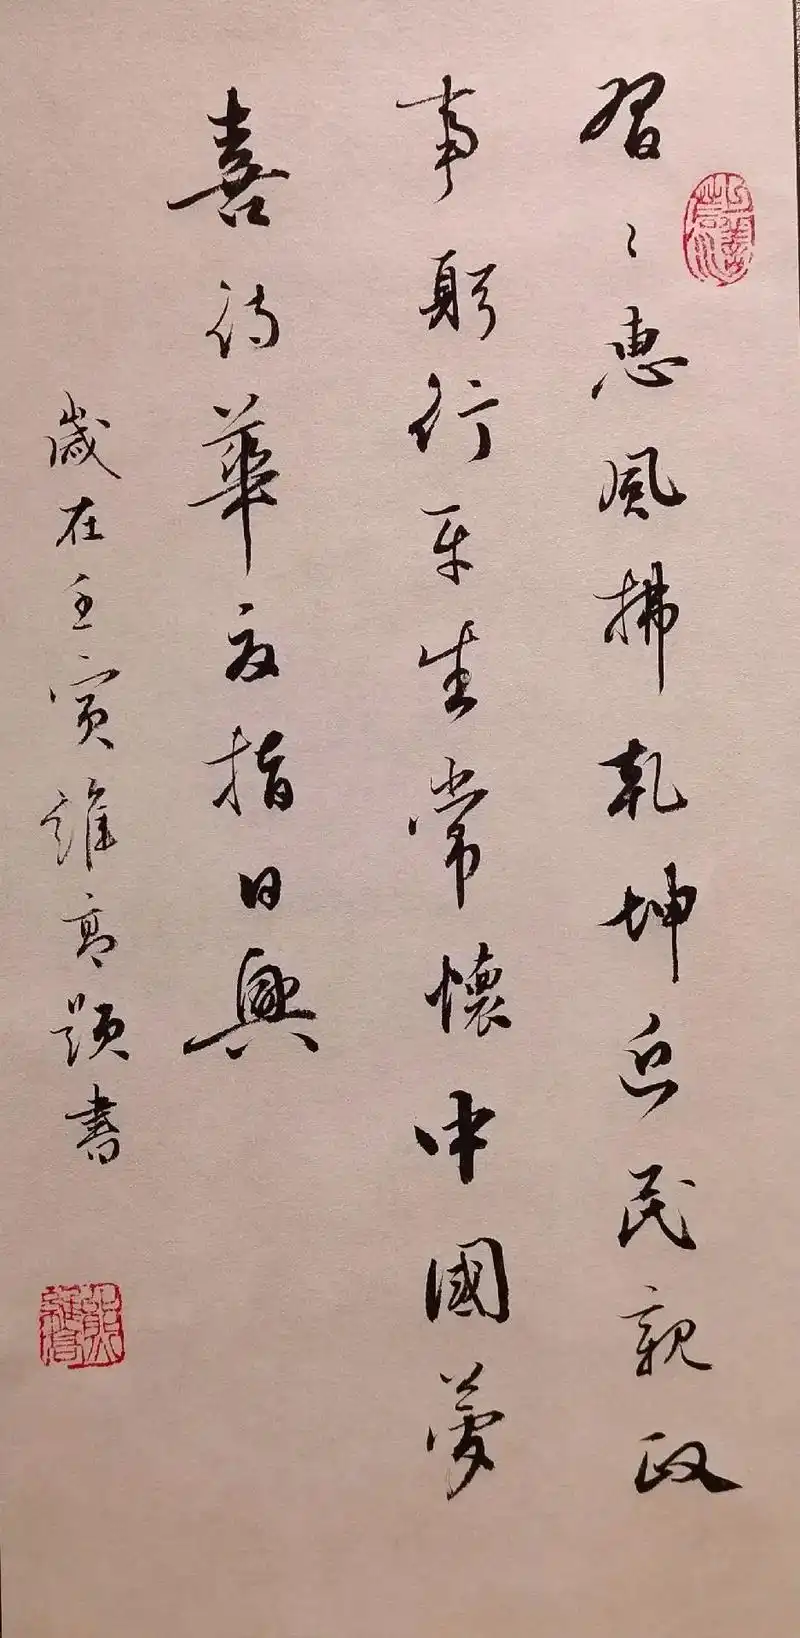 習〻惠風拂乾坤近民親政
事躬行平生常懷中國夢
喜待華夏指日興
歲在壬寅維高題書